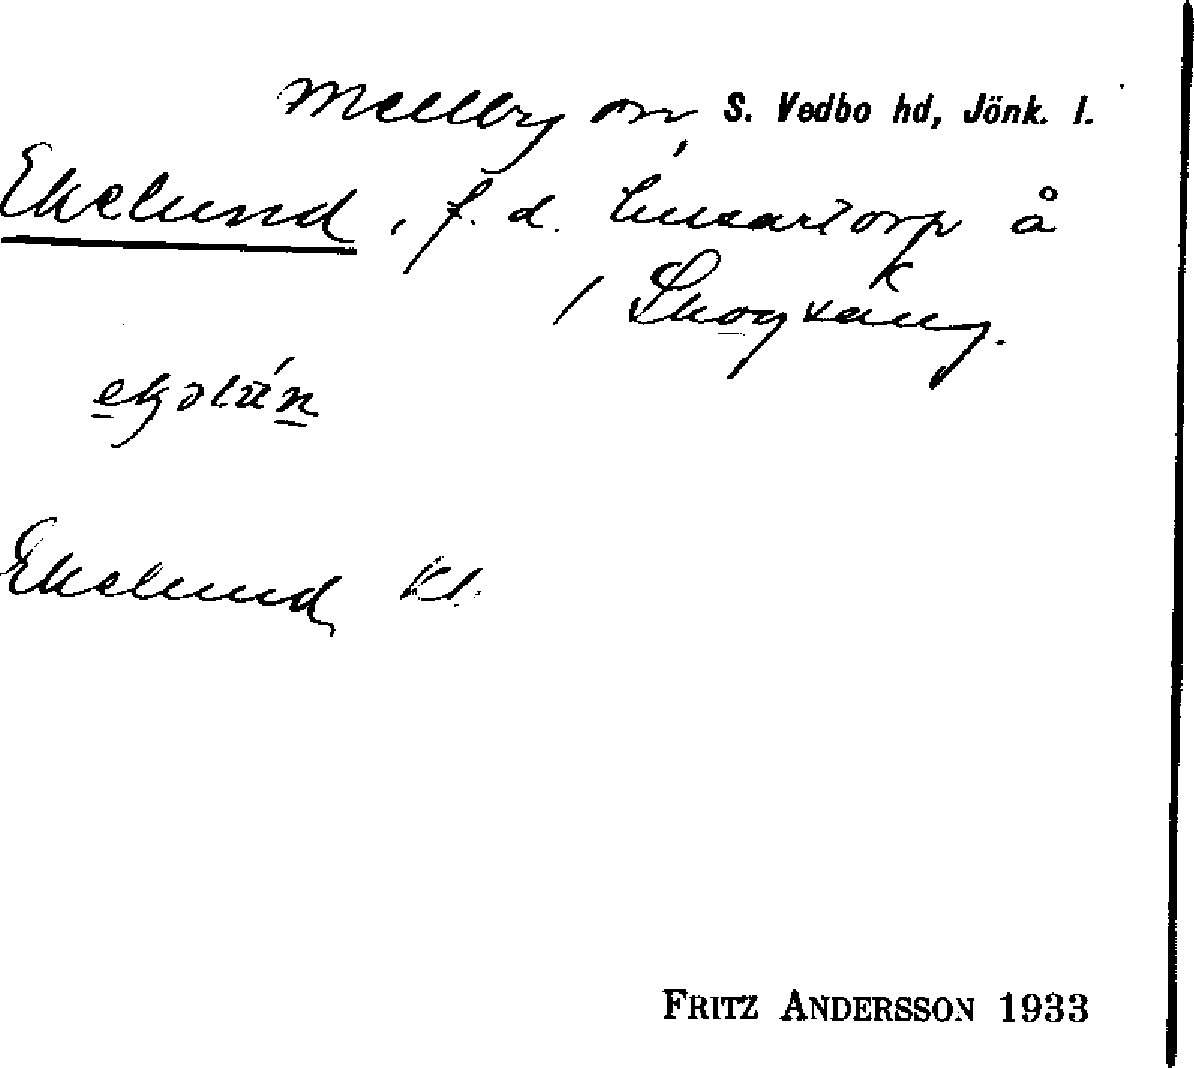 Mellby sn, S. Vedbo hd, Jönk. l.
Ekelund, f. d. husartorp å
/ Skogsäng.
Ekelund kl.
FRITZ ANDERSSON 1933